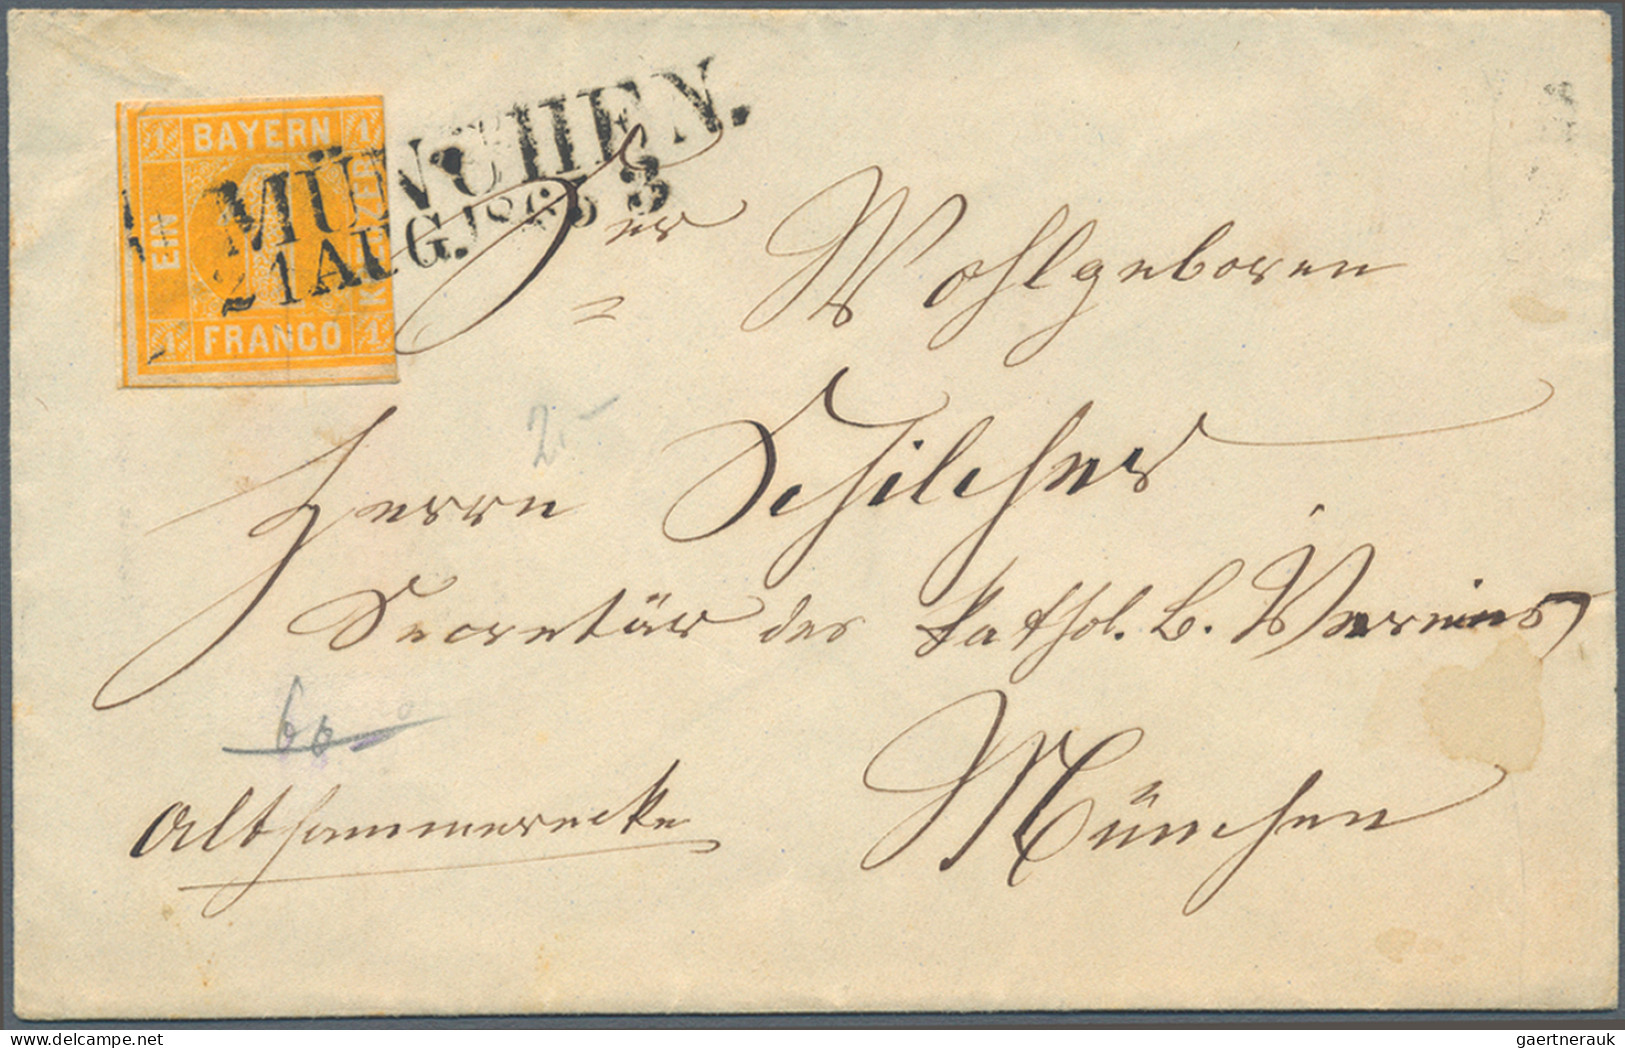 1 BAYERN 1
EIN
KREUZER
1 FRANCO 1
MÜNCHEN.
21 AUG. 1863 3
Wohlgeboren
2.-
Herrn Schilcher
Secretär des kathol. B. Vereins
60
München
Althammerecke
gaertnerauk